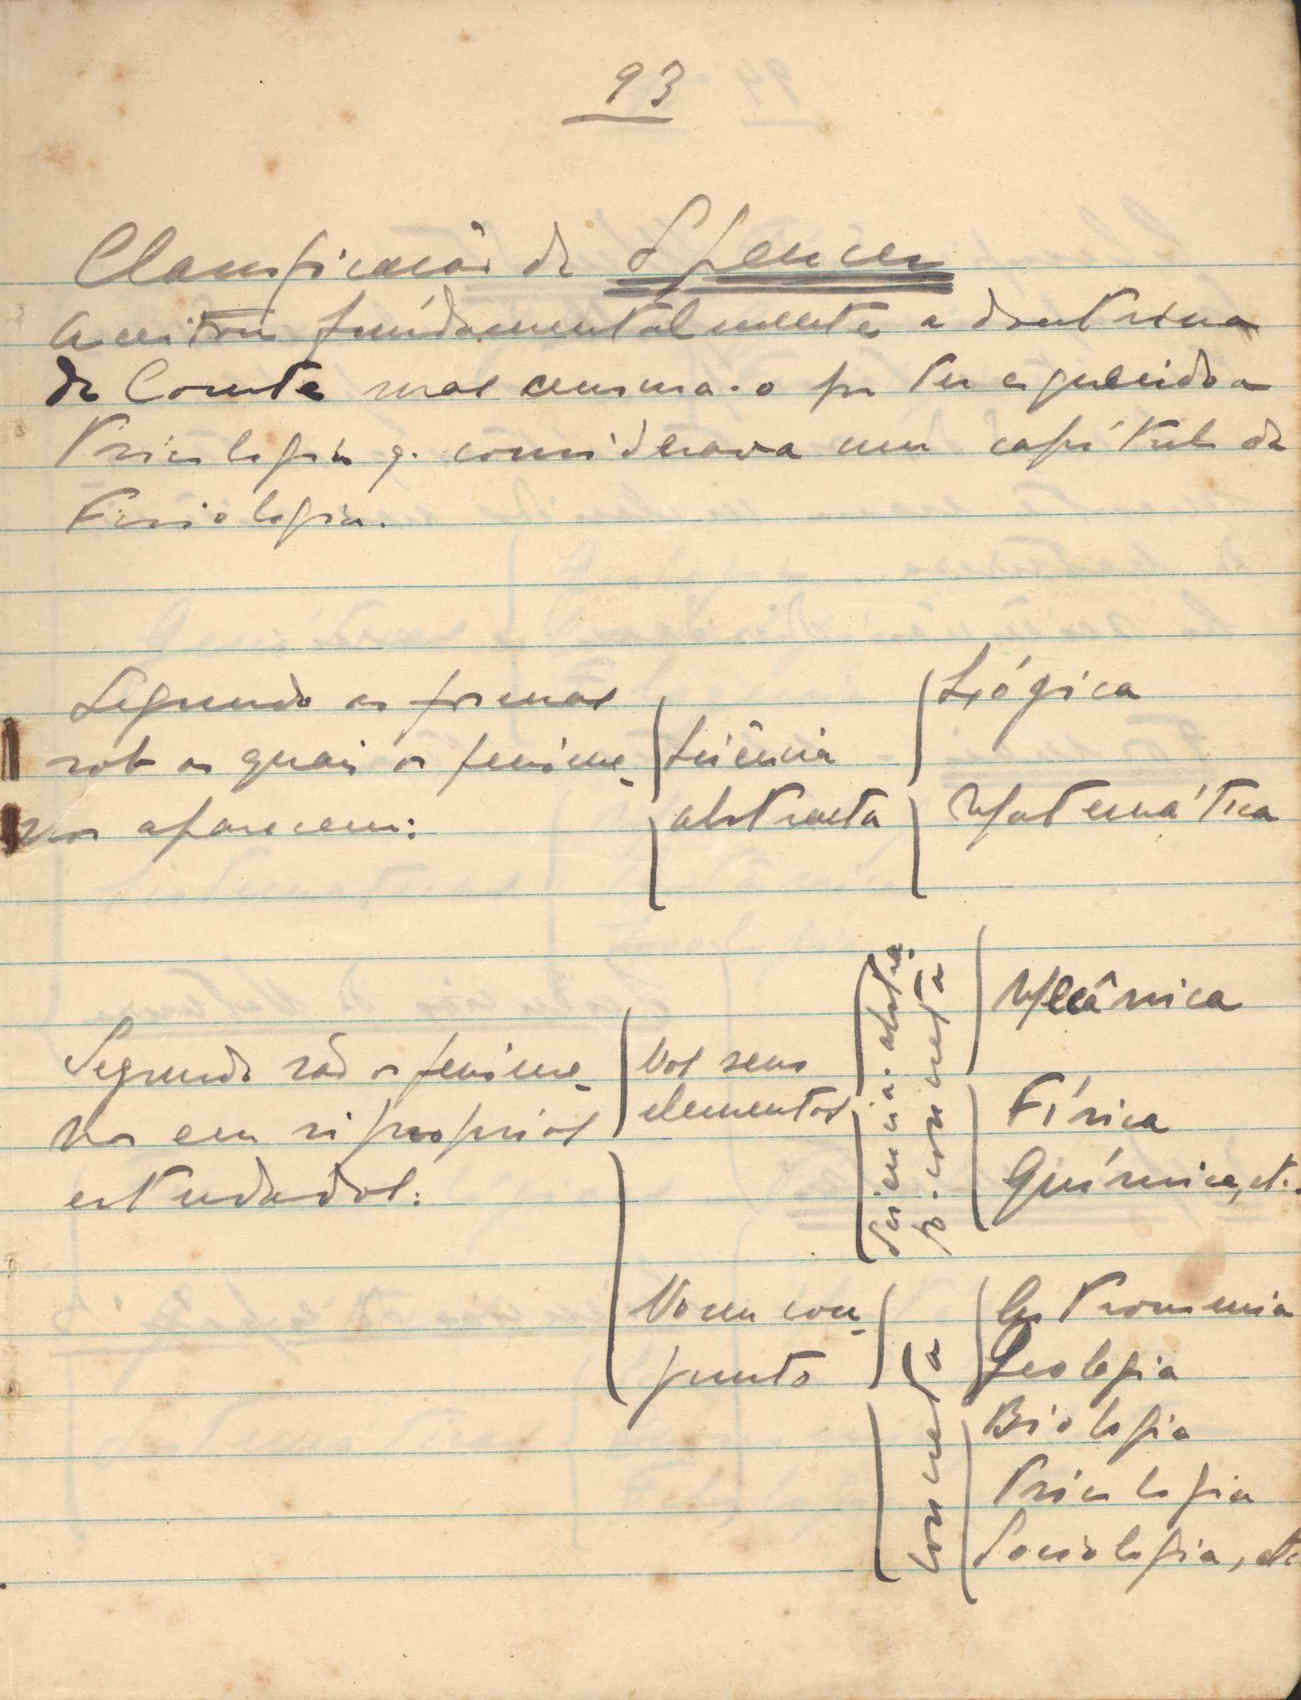 93
Classificação de Spencer
Aceitou fundamentalmente a doutrina
de Comte mas censura-o por ter esquecido a
Psicologia q. considerava um capítulo da
Fisiologia.
Segundo as formas
sob as quais os fenóme-
nos aparecem:
Ciência
abstracta
Lógica
Matemática
Segundo são os fenóme-
nos em si próprios
estudados:
Nos seus
elementos
Ciência abstra
to-concreta
Mecânica
Física
Química, etc.
No seu con-
junto
concreta
Astronomia
Geologia
Biologia
Psicologia
Sociologia, etc